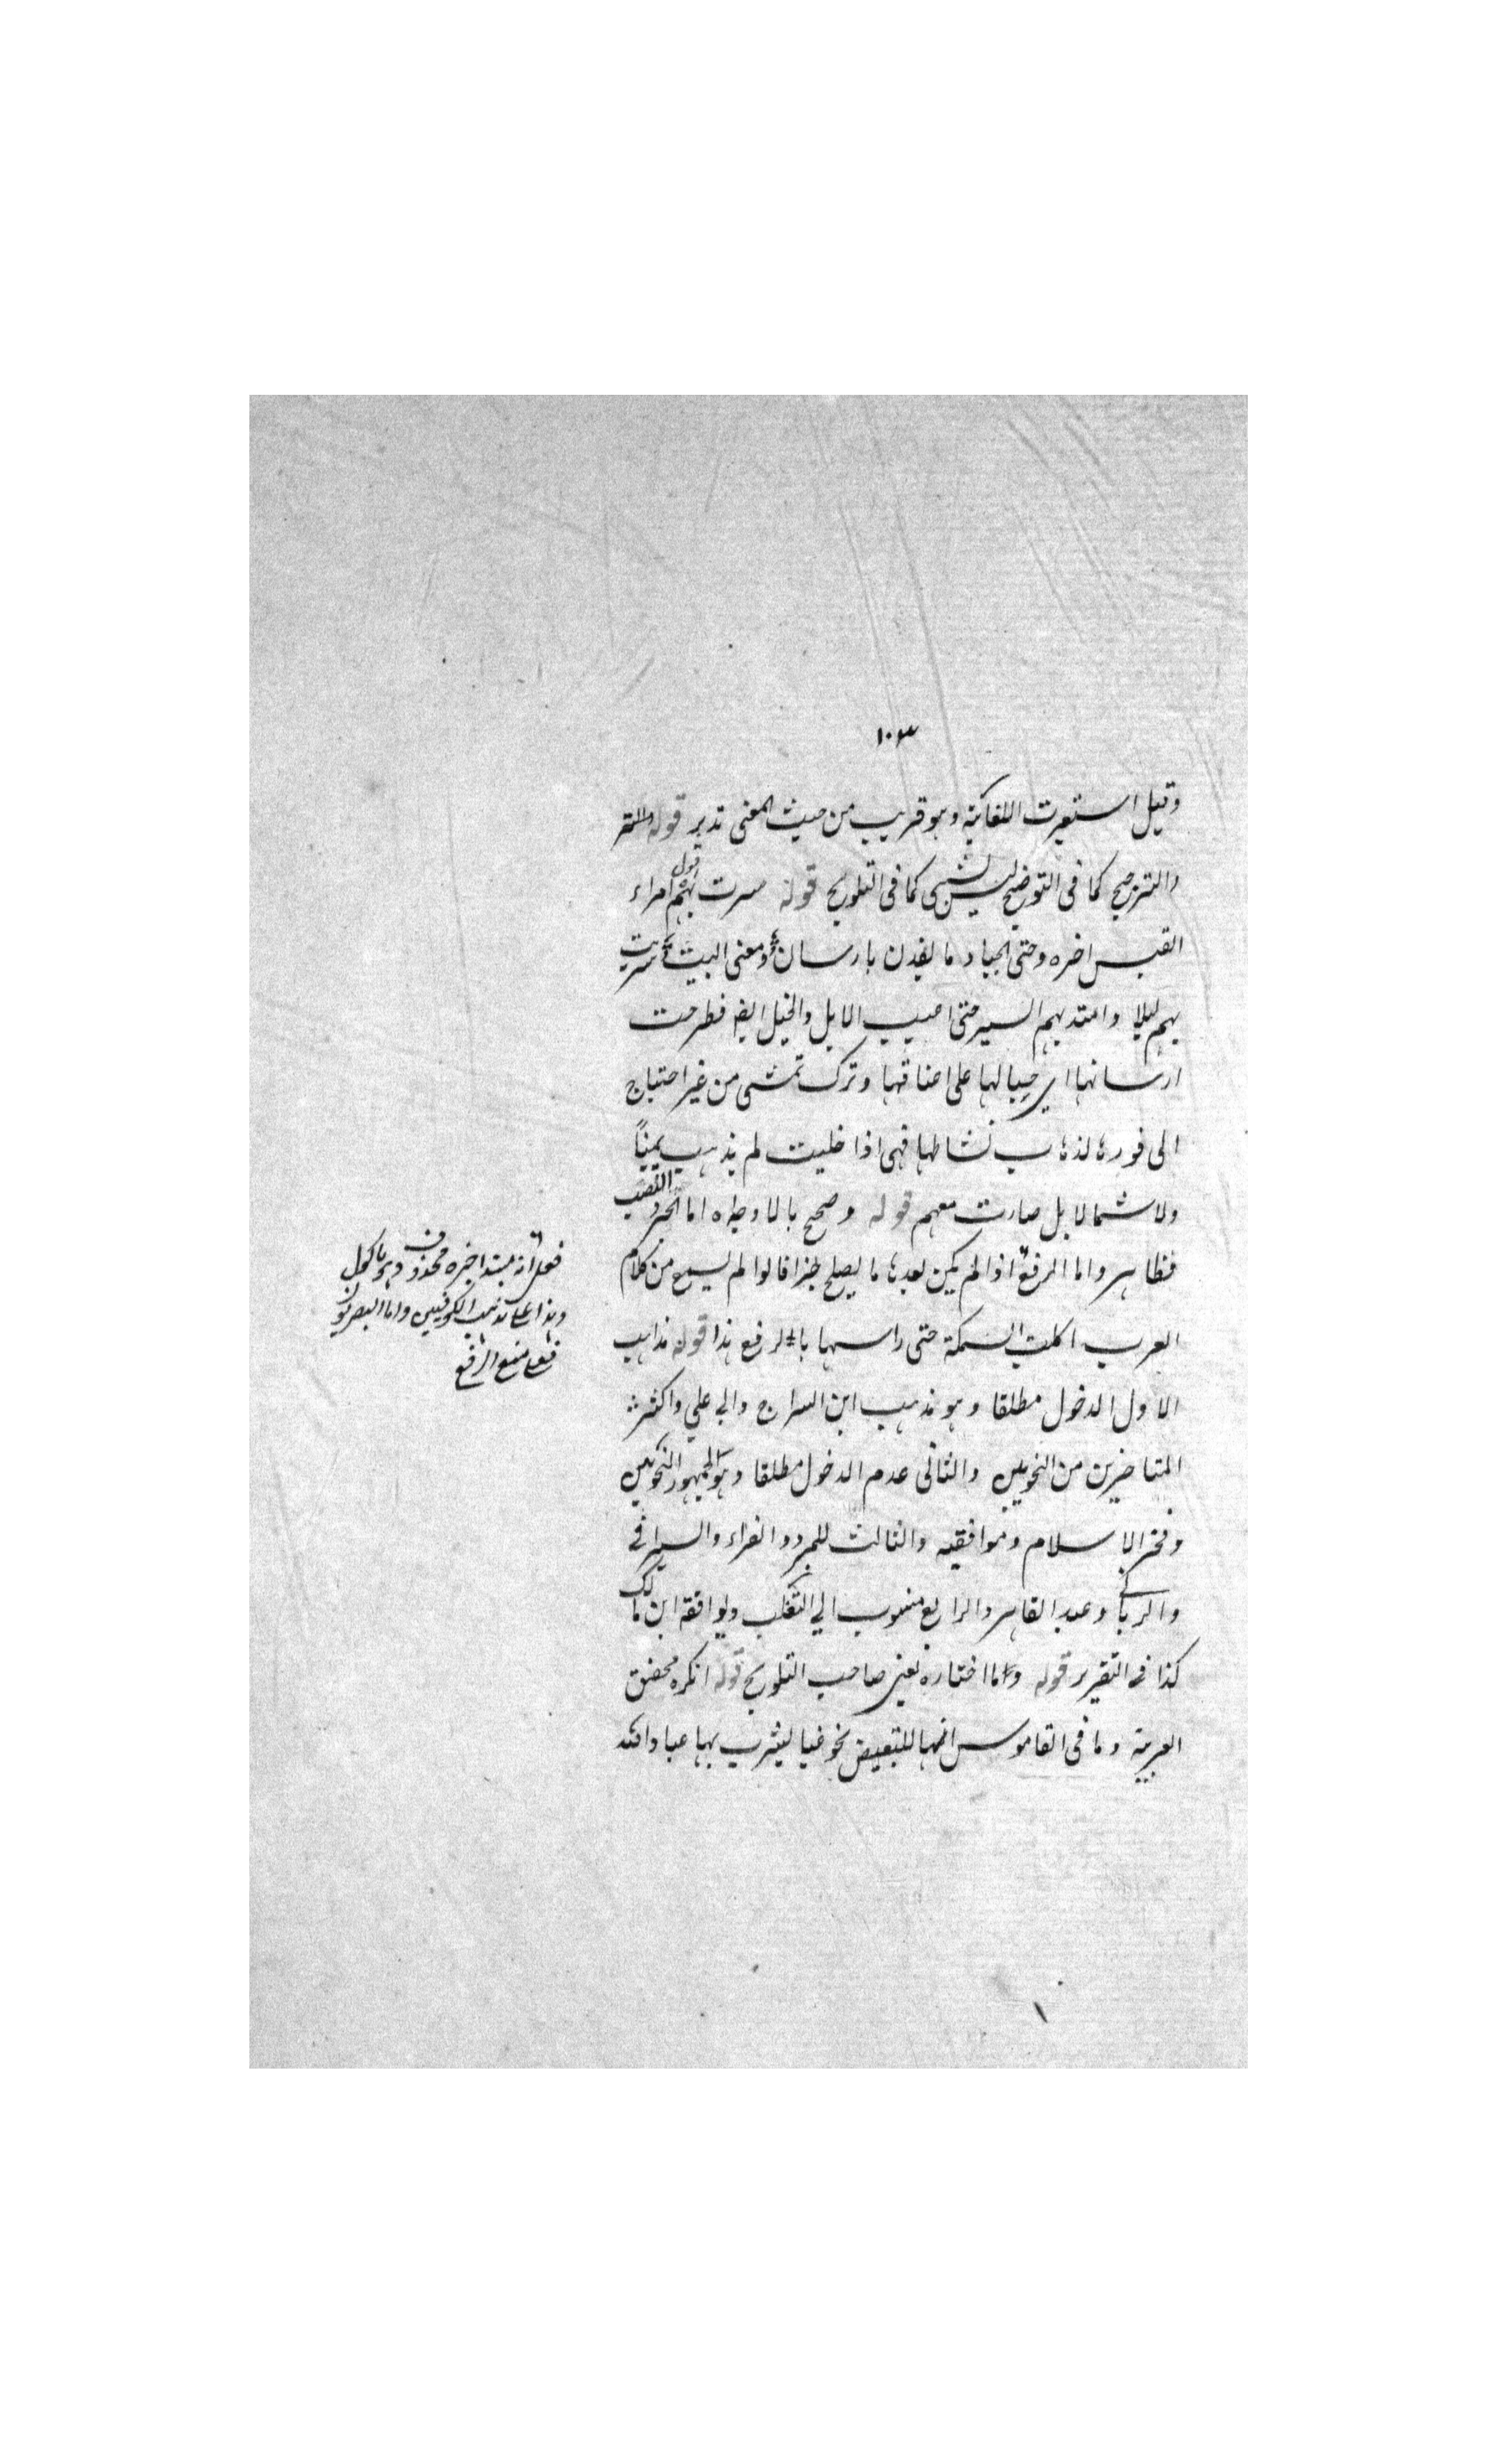 ١٠٣
وقيل استعيرت اللغاية وهو قريب من حيث المعنى تدبر قوله
والترجيح كما في التوضيح ليس بشيء كما في التلويح قوله سرت بهم قول امراء
القيس اخره وحتى الجياد ما يقدن بارسان ومعنى البيت سريت
بهم ليلا وامتد بهم السير حتى اعييت الابل والخيل ايضا فطرحت
ارسانها اي حبالها على اعناقها وترك تمشي من غير احتياج
الى قورها لذهاب نشاطها فهي اذا خليت لم يذهب يمينًا
ولا شمالا بل صارت معهم قوله وصحح بالاوجه اما الجر والنصب
فظاهر واما الرفع اذا لم يكن بعدها ما يصلح خبرا قالوا لم يسمع من كلام
العرب اكلت السمكة حتى راسها بالرفع هذا قوله مذاهب
الاول الدخول مطلقا وهو مذهب ابن السراج وابي علي واكثر
المتاخرين من النحويين والثاني عدم الدخول مطلقا وهو لجمهور النحويين
وفخر الاسلام وموافقيه والثالث للمبرد والفراء والسيرافي
وعبد القاهر والرابع منسوب الي الثعلب ويوافقه ابن مالك
كذا في التقرير قوله وما اختاره يعني صاحب التلويح قوله انكره محقق
العربية وما في القاموس انها للتبعيض نحو عينا يشرب بها عباد الله
فعلى انه مبتدا خبره محذوف وهو ماكول
وهذا على مذهب الكوفيين واما البصريون
فعلى منع الرفع